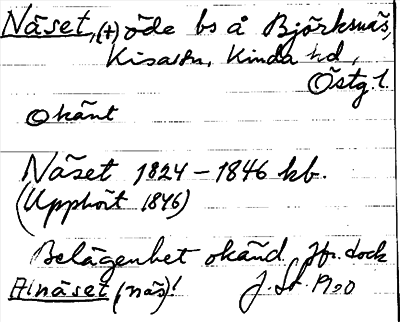 Näset, (+) öde bs å Björksnäs,
Kisa sn, Kinda hd,
Östg. l.
Okänt
Näset 1824 – 1846 kb.
(Upphört 1846)
Belägenhet okänd. Jfr. dock
näset (näs)! J. St. 1920